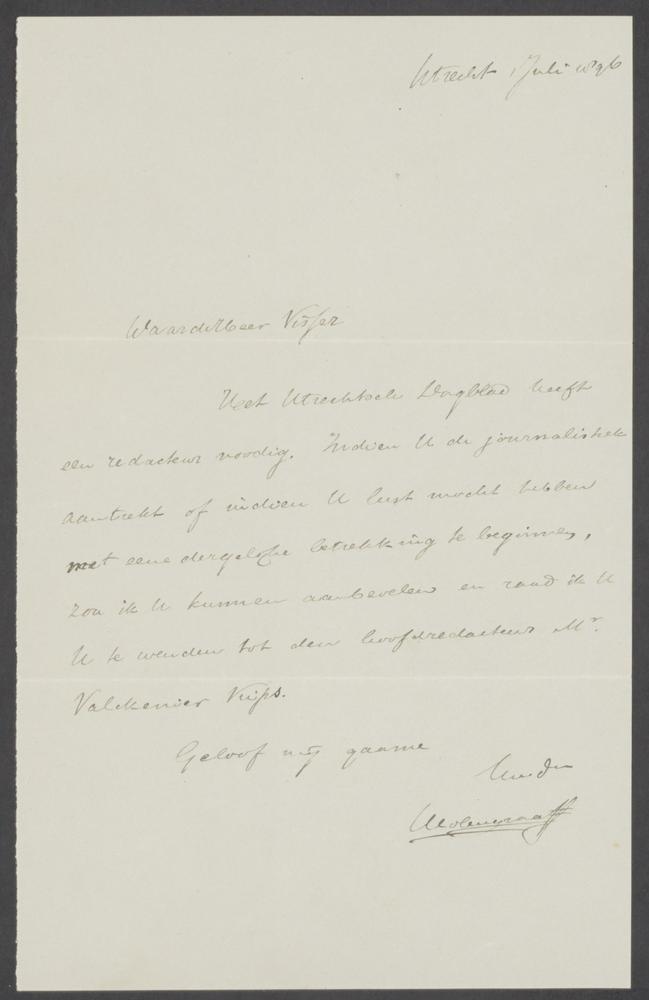 Utrecht 1 Juli 1896
Waarde Heer Visser
Het Utrechtsch Dagblad heeft
een redacteur noodig. Indien U de journalistiek
aantrekt of indien U lust mocht hebben
met eene dergelijke betrekking te beginnen,
zou ik U kunnen aanbevelen en raad ik U
U te wenden tot den hoofdredacteur Mr.
Valckenier Kips.
Geloof mij gaarne
Molengraaff